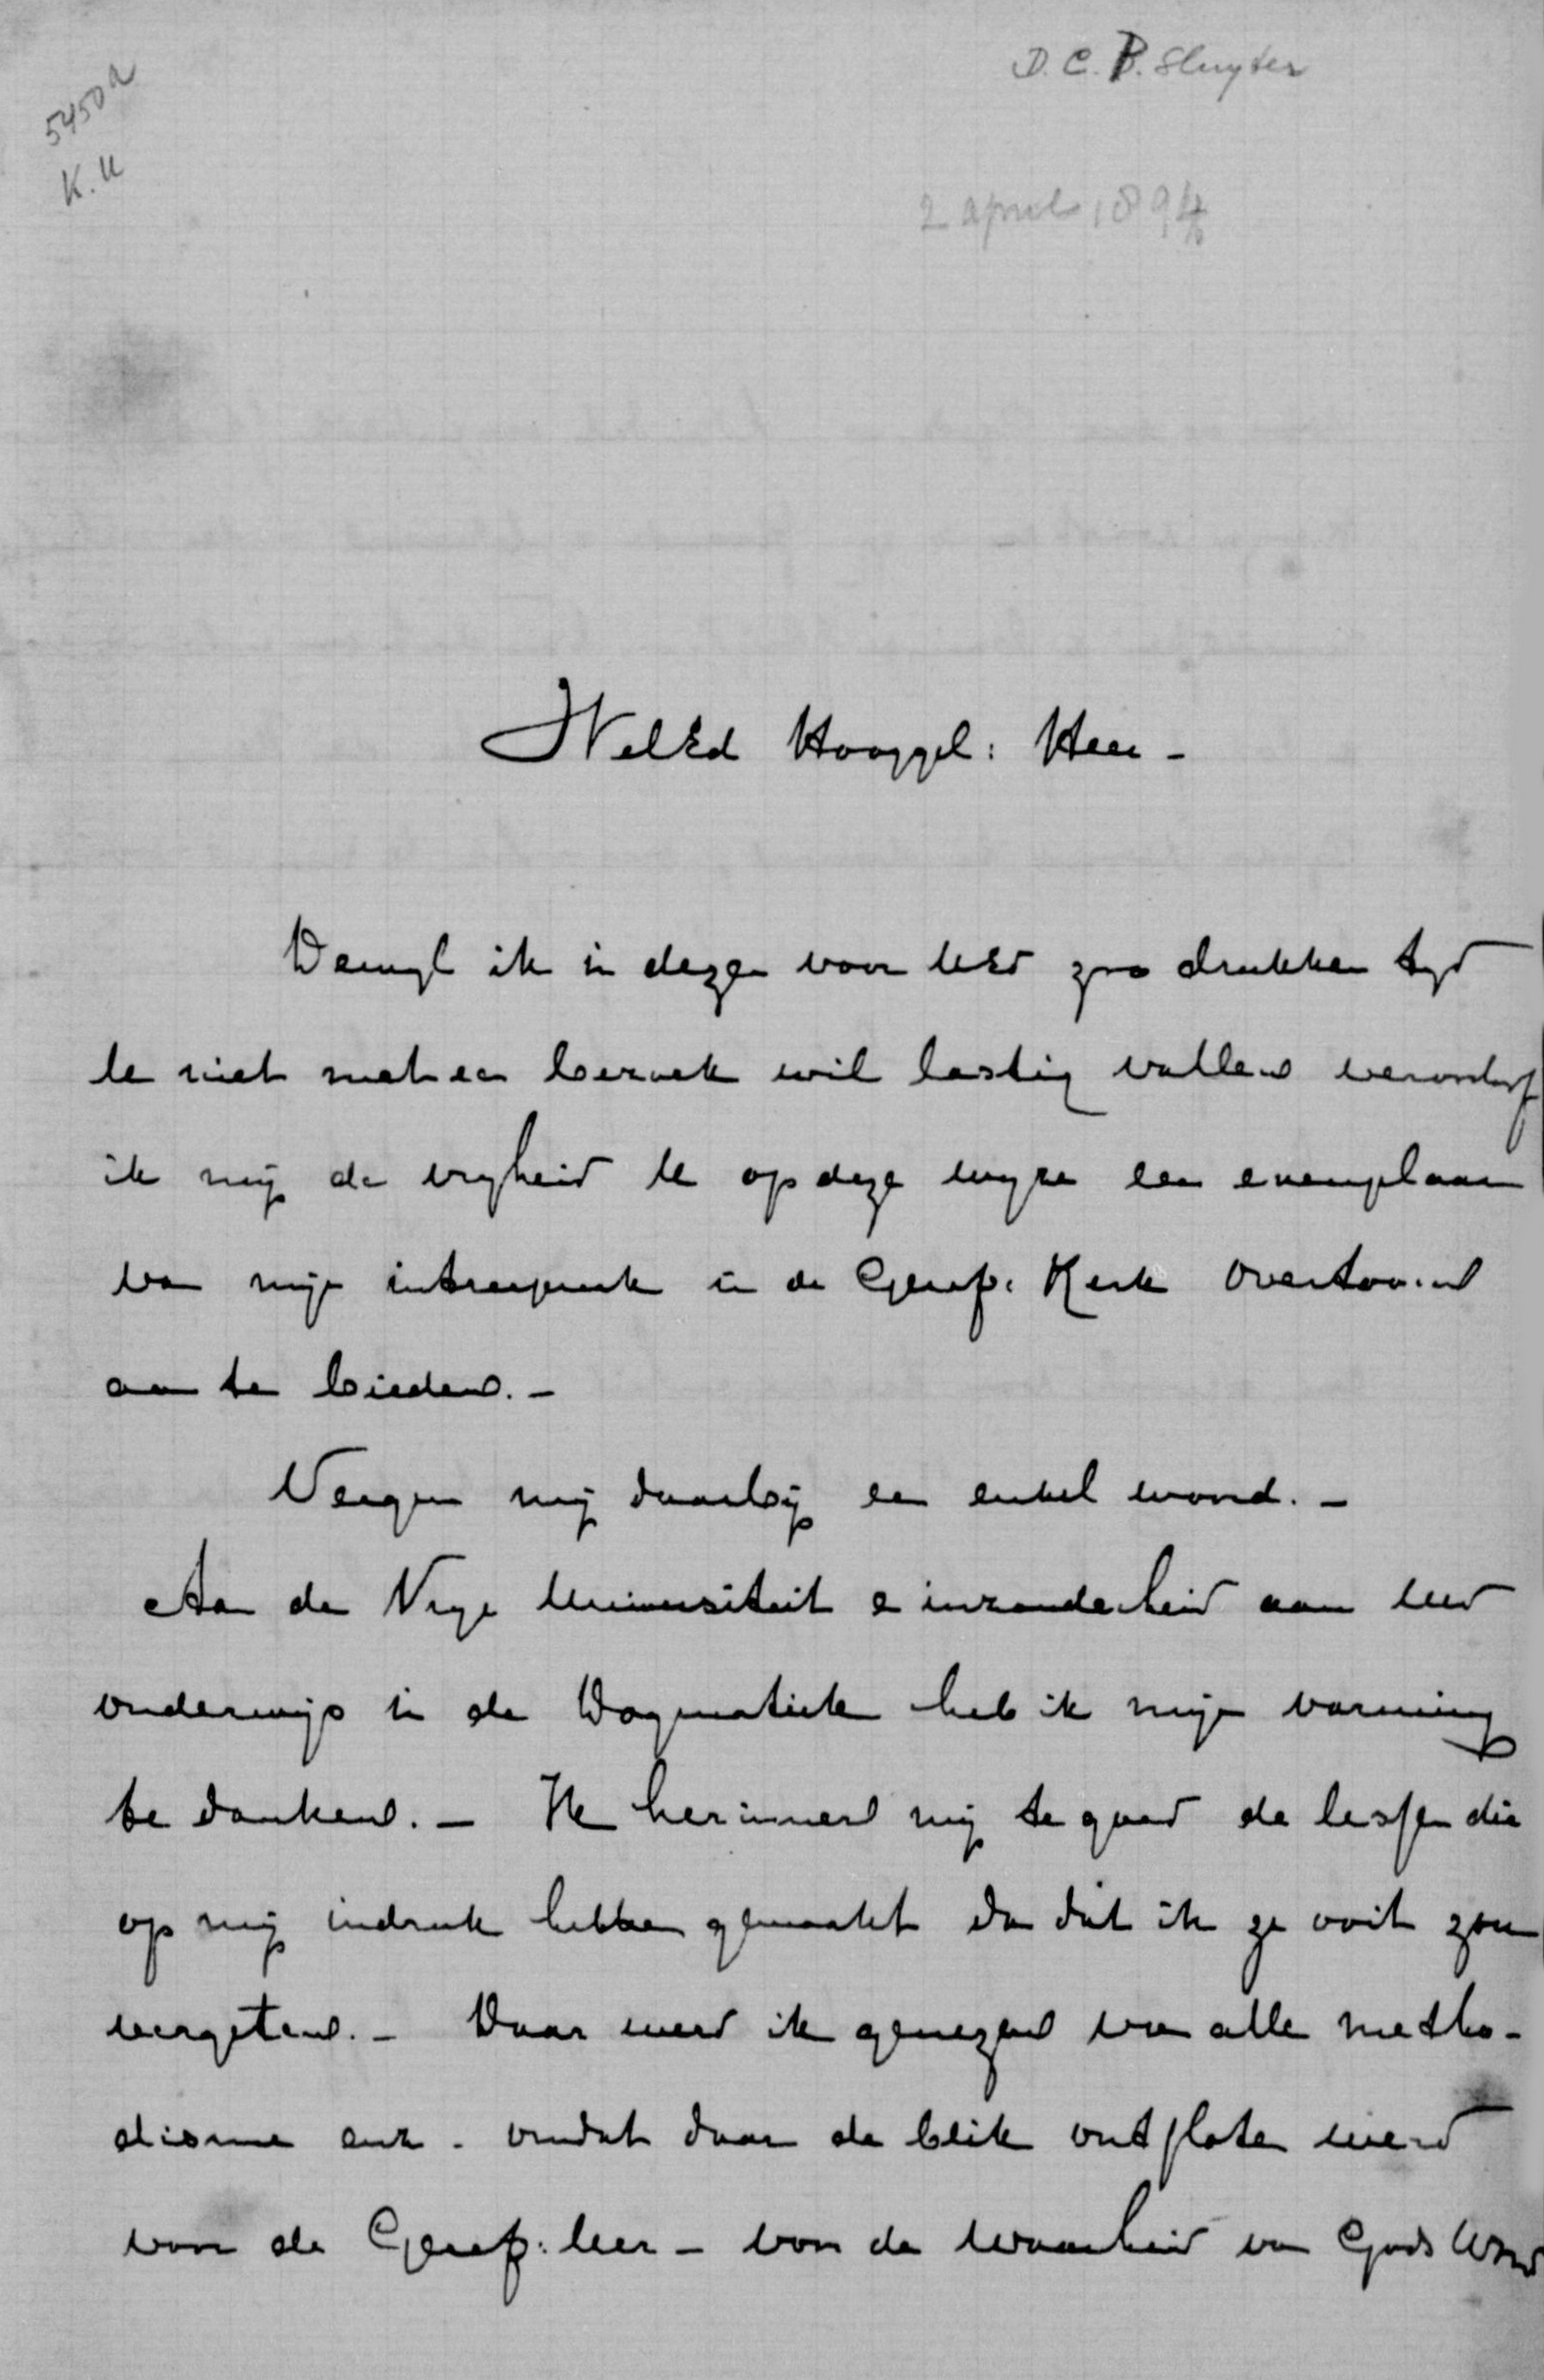 D. C. B. Sluyter
5450a
K. U
2 april 1894
WelEd Hooggel: Heer -
Dewyl ik in dezen voor UEd zoo drukken tyd
U niet met een bezoek wil lastig vallen veroorloof
ik mij de vryheid U op deze wyze een exemplaar
van mijn intreepreek in de Geref: Kerk Overtoom
aan te bieden. -
Vergun mij daarbij een enkel woord. -
Aan de Vrye Universiteit & inzonderheid aan uw
onderwijs in de Dogmatiek heb ik mijn vorming
te danken. - Ik herinner mij te goed de lessen die
op mij indruk hebben gemaakt dan dat ik ze ooit zou
vergeten. - Daar werd ik genezen van alle metho-
disme enz. omdat daar de blik ontsloten werd
voor de Geref: leer - voor de waarheid van Gods Woord